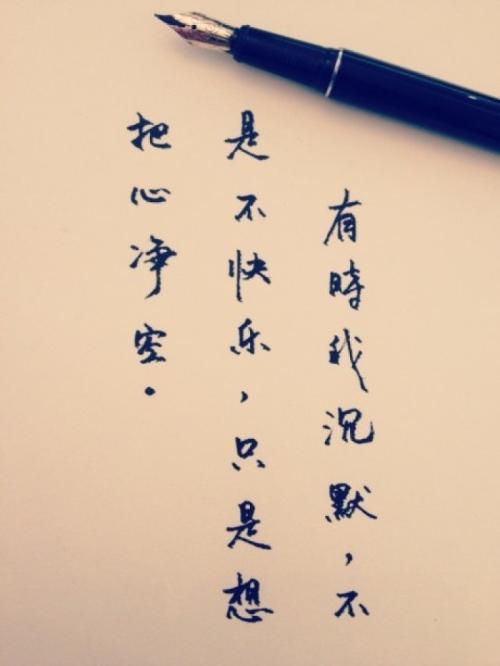 有時我沉默，不
是不快乐，只是想
把心净空．